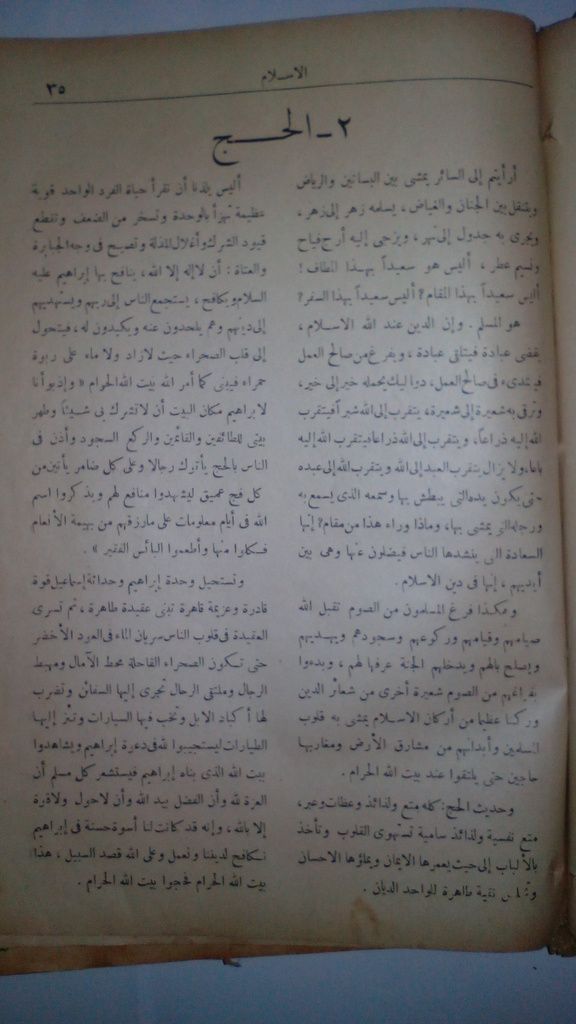 الاسلام
٣٥
٢ - الحج
أرأيتم إلى السائر يمشى بين البساتين والرياض
ويتنقل بين الجنان والغياض ، يسلمه زهر إلى زهر ،
ويجرى به جدول إلى نهر ، ويزجى إليه أرج فياح
ونسيم عطر ، أليس هو سعيداً بهذا المطاف !
أليس سعيداً بهذا المقام ؟ أليس سعيداً بهذا السفر ؟
هو المسلم . وإن الدين عند الله الاسلام ،
يقضى عبادة فيتلقى عبادة ، ويفرغ من صالح العمل
فيبتدىء فى صالح العمل ، دواليك يحمله خير إلى خير ،
وترقى به شعيرة إلى شعيرة ، يتقرب إلى الله شبراً فيتقرب
الله إليه ذراعاً ، ويتقرب إلى الله ذراعا فيتقرب الله إليه
باعا ، ولا يزال يتقرب العبد إلى الله ويتقرب الله إلى عبده
حتى يكون يده التى يبطش بها وسمعه الذى يسمع به
ورجله التى يمشى بها ، وماذا وراء هذا من مقام ؟ إنها
السعادة التى ينشدها الناس فيضلون عنها وهى بين
أيديهم ، إنها فى دين الاسلام .
وهكذا فرغ المسلمون من الصوم تقبل الله
صيامهم وقيامهم وركوعهم وسجودهم ويهديهم
ويصلح بالهم ويدخلهم الجنة عرفها لهم ، وبدءوا
بفراغهم من الصوم شعيرة أخرى من شعائر الدين
وركنا عظيما من أركان الاسلام يمشى به قلوب
المسلمين وأبدانهم من مشارق الأرض ومغاربها
حاجين حتى يلتقوا عند بيت الله الحرام .
وحديث الحج : كله متع ولذائذ وعظات وعبر ،
متع نفسية ولذائذ سامية تستهوى القلوب وتأخذ
بالألباب إلى حيث يعمرها الايمان ويملؤها الاحسان
نقية طاهرة للواحد الديان .
أليس يلذنا أن نقرأ حياة الفرد الواحد قوية
عظيمة تهزأ بالوحدة وتسخر من الضعف وتقطع
قيود الشرك وأغلال المذلة وتصيح فى وجه الجبابرة
والعتاة : أن لا إله إلا الله ، ينافح بها إبراهيم عليه
السلام ويكافح ، يستجمع الناس إلى ربهم ويستهديهم
إلى دينهم وهم يلحدون عنه ويكيدون له ، فيتحول
إلى قلب الصحراء حيث لا زاد ولا ماء على ربوة
حمراء فيبنى كما أمر الله بيت الله الحرام « وإذ بوأنا
لابراهيم مكان البيت أن لا تشرك بى شيئاً وطهر
بيتى للطائفين والقائمين والركع السجود وأذن فى
الناس بالحج يأتوك رجالا وعلى كل ضامر يأتين من
كل فج عميق ليشهدوا منافع لهم ويذكروا اسم
الله فى أيام معلومات على ما رزقهم من بهيمة الأنعام
فكلوا منها وأطعموا البائس الفقير » .
وتستحيل وحدة إبراهيم وحداثة إسماعيل قوة
قادرة وعزيمة قاهرة تبنى عقيدة طاهرة ، ثم تسرى
العقيدة فى قلوب الناس سريان الماء فى العود الأخضر
حتى تكون الصحراء القاحلة محط الآمال ومهبط
الرجال وملتقى الرحال تجرى إليها السفائن وتضرب
لها أكباد الابل وتخب فيها السيارات وتئز إليها
الطيارات ليستجيبوا لله فى دعوة إبراهيم ويشاهدوا
بيت الله الذى بناه إبراهيم فيستشعر كل مسلم أن
العزة لله وأن الفضل بيد الله وأن لا حول ولا قوة
إلا بالله ، وإنه قد كانت لنا أسوة حسنة فى إبراهيم
نكافح لديننا ونعمل وعلى الله قصد السبيل ، هذا
بيت الله الحرام فحجوا بيت الله الحرام .